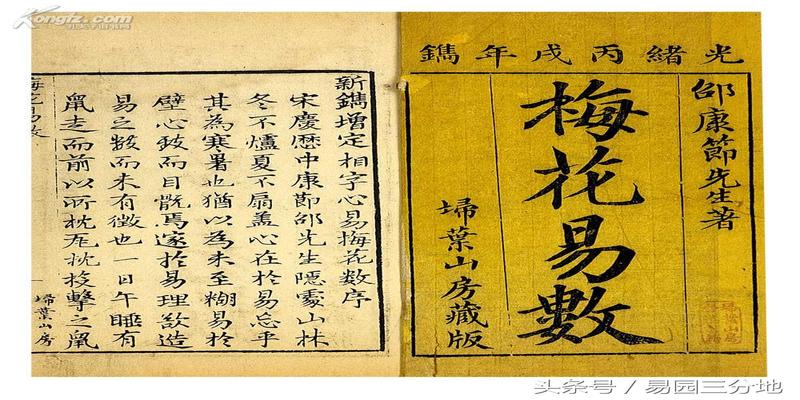 Kongfz.com
光緒丙戌年鐫
邵康節先生著
梅花易數
埽葉山房藏版
新鐫增定相字心易梅花數序
宋慶歷中康節邵先生隱處山林
冬不爐夏不扇蓋心在於易忘乎
其為寒暑也猶以為未至糊易於
壁心致而目翫焉邃於易理欲造
易之數而未有徵也一日午睡有
鼠走而前以所枕瓦枕投擊之鼠
梅花易數
一
埽葉山房
头条号 / 易园三分地